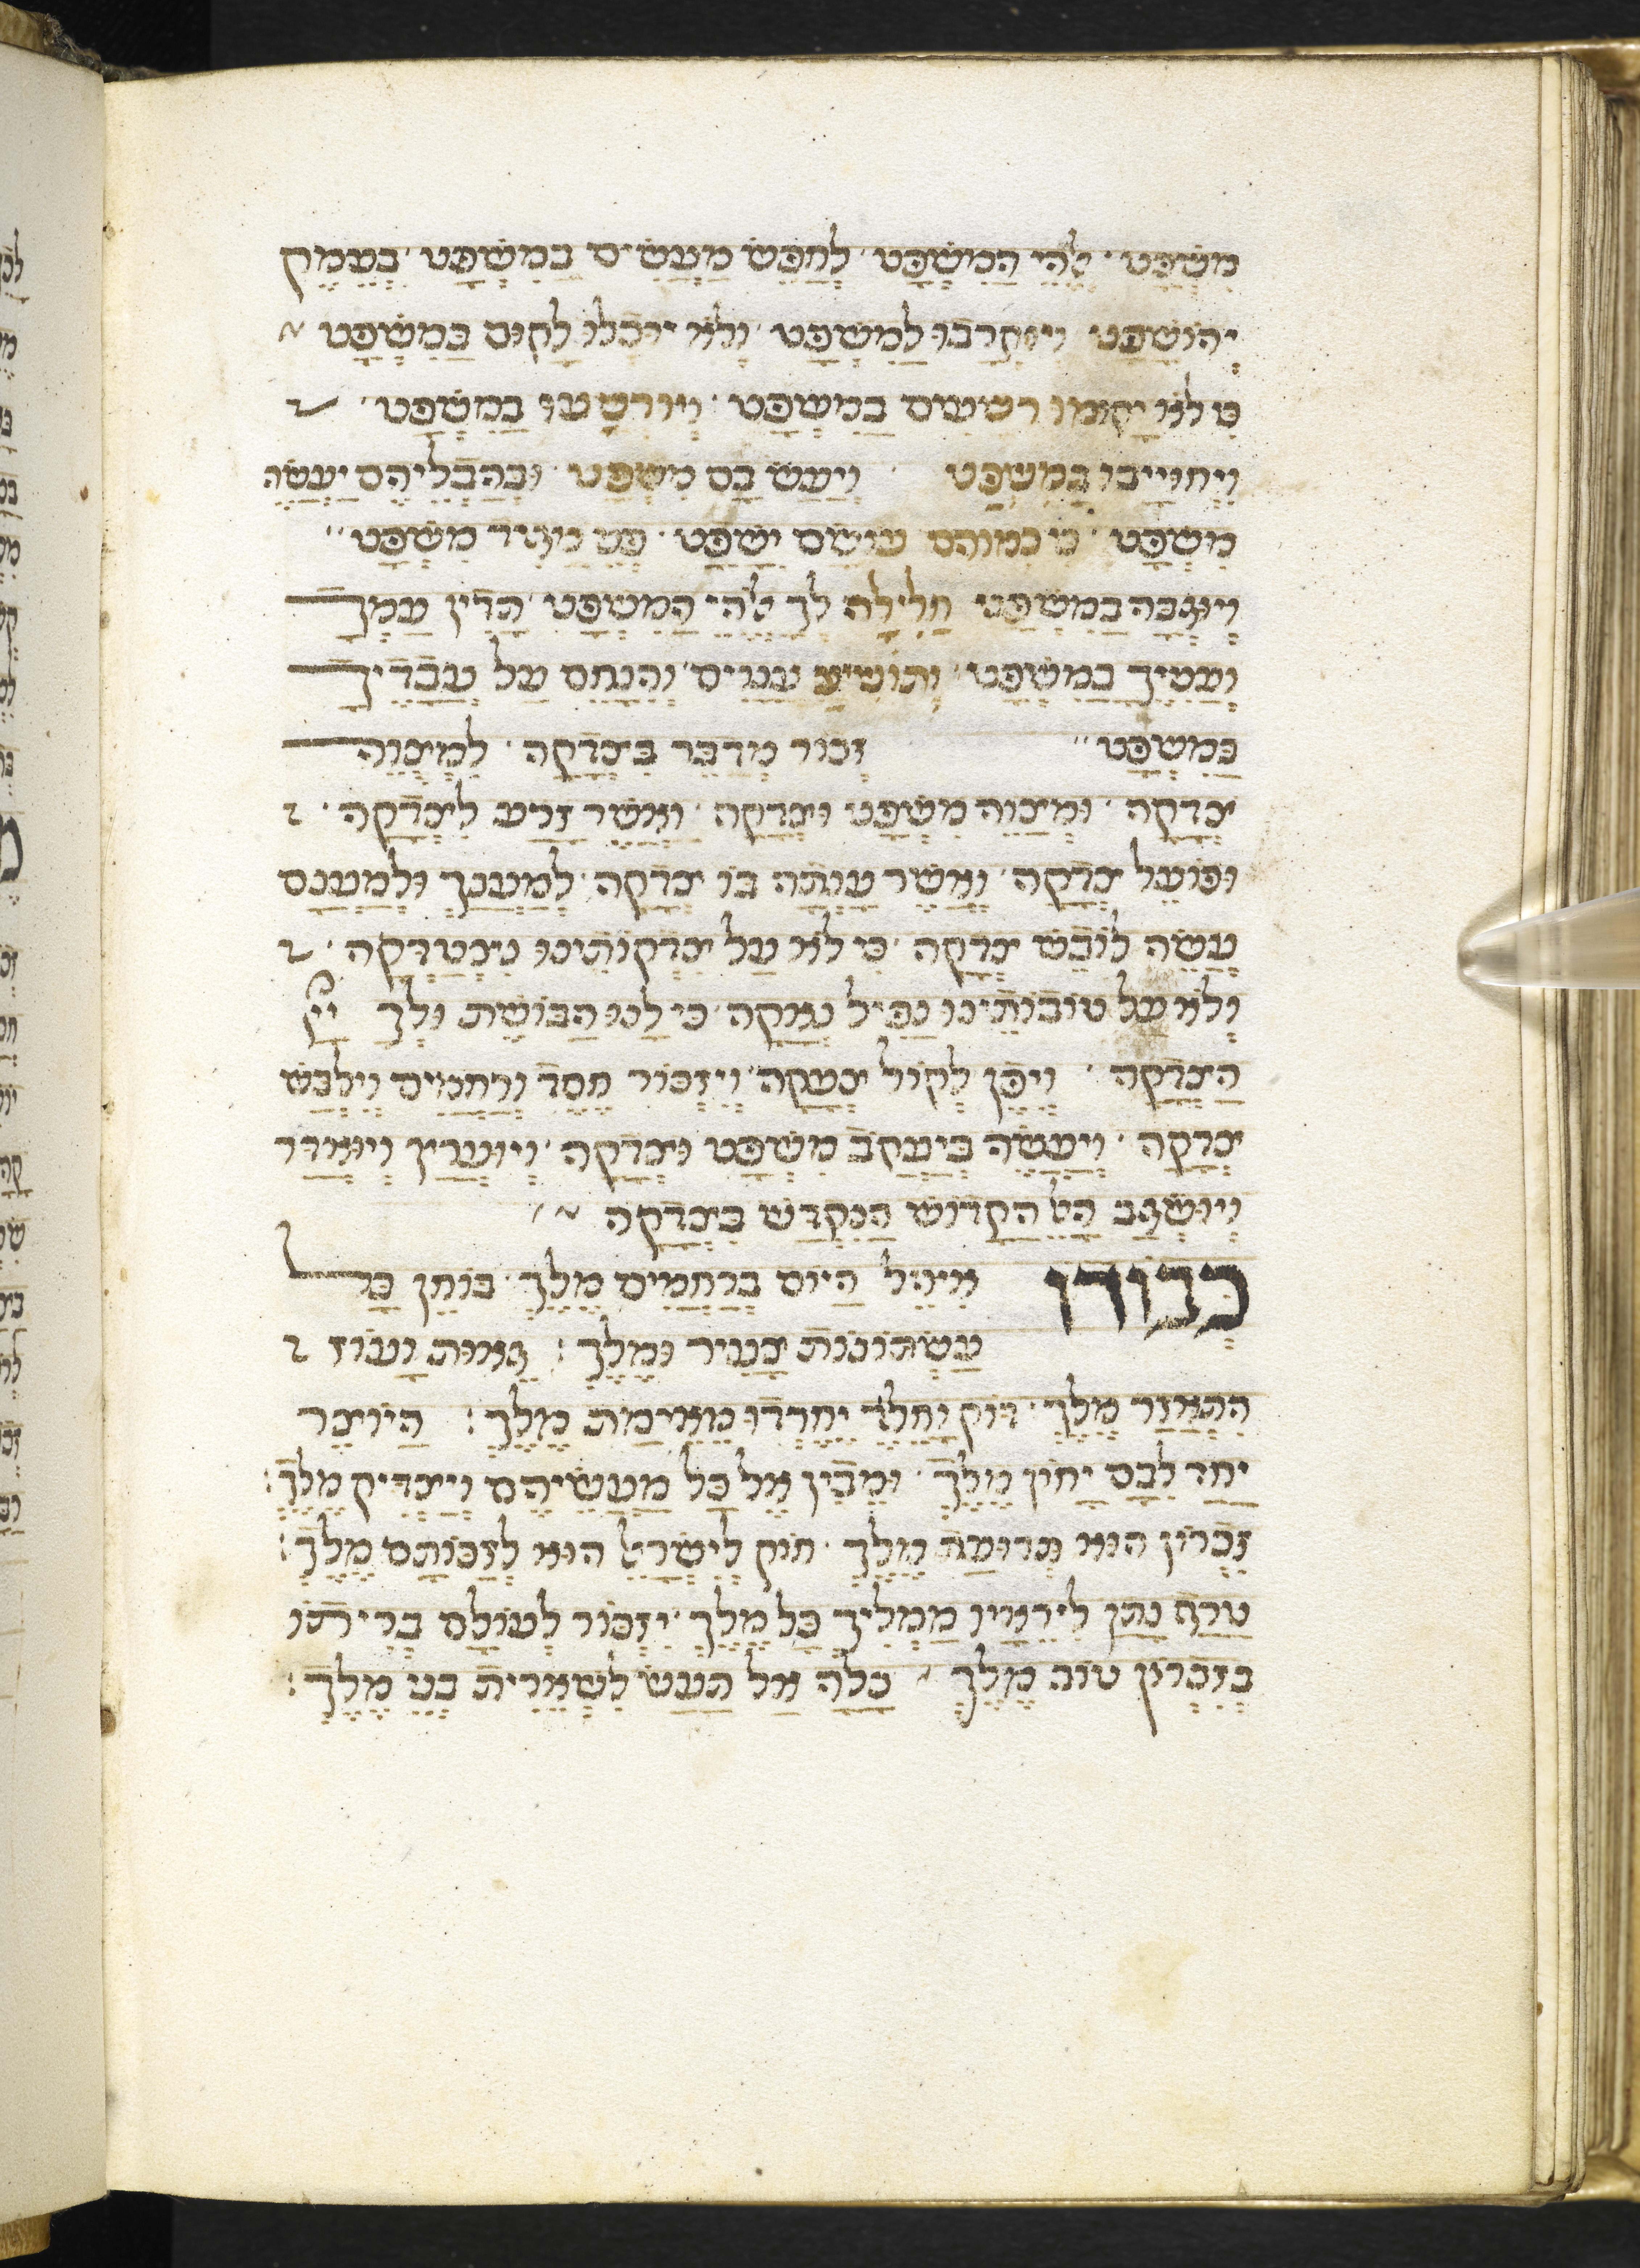 משפט · אלהי המשפט לחפש מעשים במשפט בעמק
יהושפט ויוקרבו למשפט ולא יוכלו לקום במשפט
כי לא יקומו רשעים במשפט ויורשעו במשפט
ויחוייבו במשפט ויעש בם משפט · ובהבליהם יעשה
משפט כי כמוהם עושם ישפט ·
ויוגבה במשפט חלילה לך אלהי המשפט הדין עמך
ועניך במשפט ותושיע ענוים והנחם על עבדיך
במשפט זכור מדבר בצדקה · למצוה
צדקה · ומצוה משפט וצדקה · ואשר זרע לצדקה ·
ופועל צדקה ואשר ענתה בו צדקה למענך ולמענם
עשה לובש צדקה כי לא על צדקותינו נצטדקה ·
ולא על טובותינו נפיל נאקה כי לנו הבושת ולך ייי
הצדקה · ויפן לקול צעקה ויזכור חסד ורחמים וילבש
צדקה · ויעשה ביעקב משפט וצדקה ויוערץ ויואדר
ויושגב האל הקדוש הנקדש בצדקה
זכרון איחל היום ברחמים מלך · בוחן כל
עשתונות צעיר ומלך : גאות ועוז
התאזר מלך · דוק וחלד יחרדו מאימת מלך : היוצר
יחד לבם יחון מלך · ומבין אל כל מעשיהם ויצדיק מלך :
זכרון הוא תרועה מלך · חוק לישראל הוא לזכותם מלך :
טרף נתן ליראיו ממליך כל מלך יזכור לעולם בריתו
בזכרון טוב מלך · כלה אל תעש לשארית בני מלך :